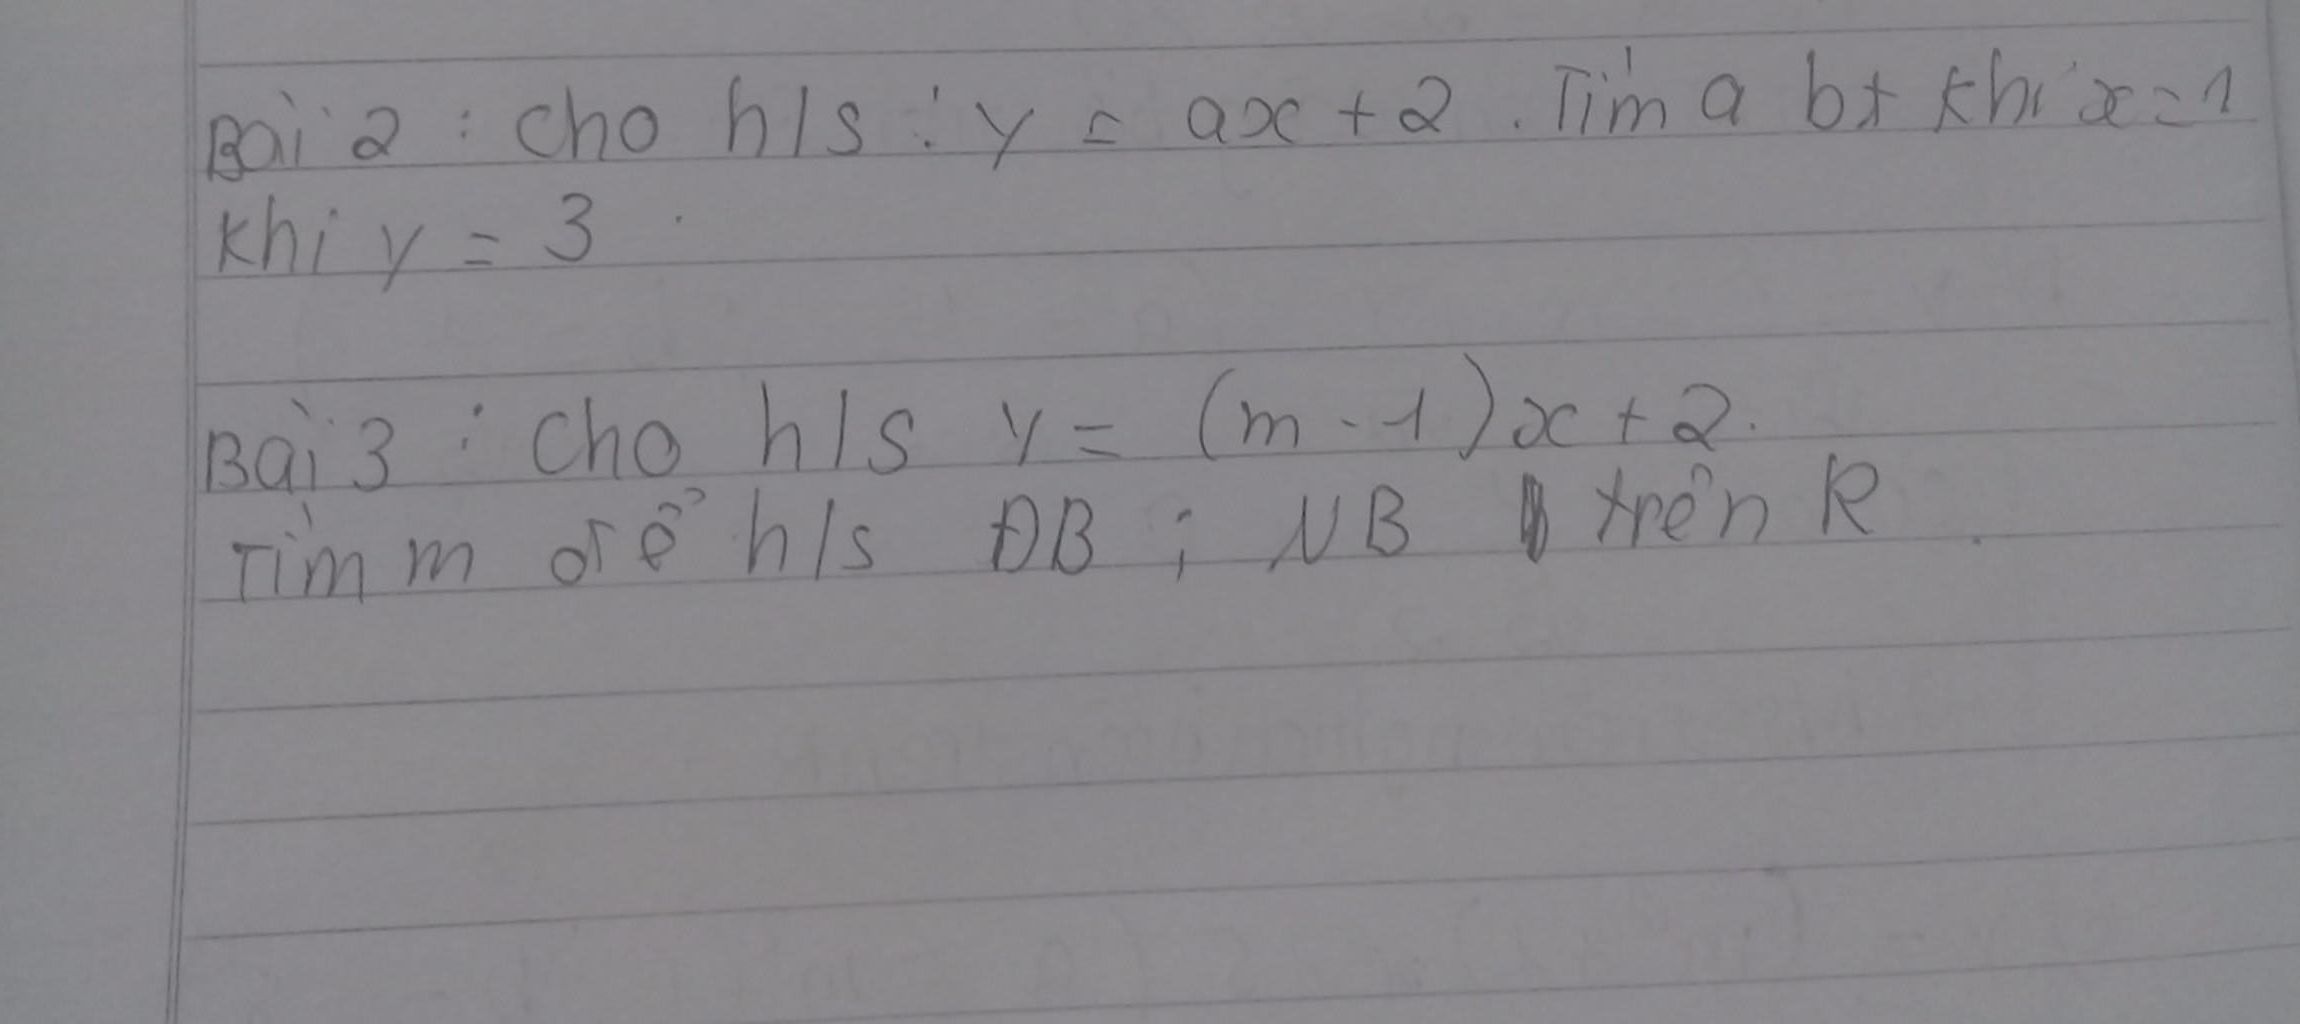 Bài 2 : Cho h/s : y = ax + 2 . Tìm a bt khi x = 1
Khi y = 3 .
Bài 3 : Cho h/s y = (m - 1)x + 2.
Tìm m để h/s ĐB ; NB trên R .